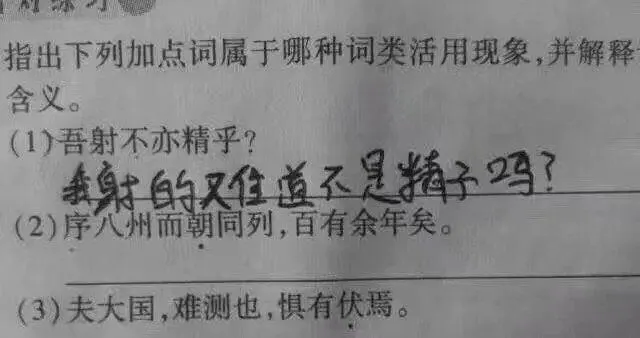 对练习
指出下列加点词属于哪种词类活用现象,并解释
含义。
(1)吾射不亦精乎?
我射的又住道不是精子吗?
(2)序八州而朝同列,百有余年矣。
(3)夫大国,难测也,惧有伏焉。